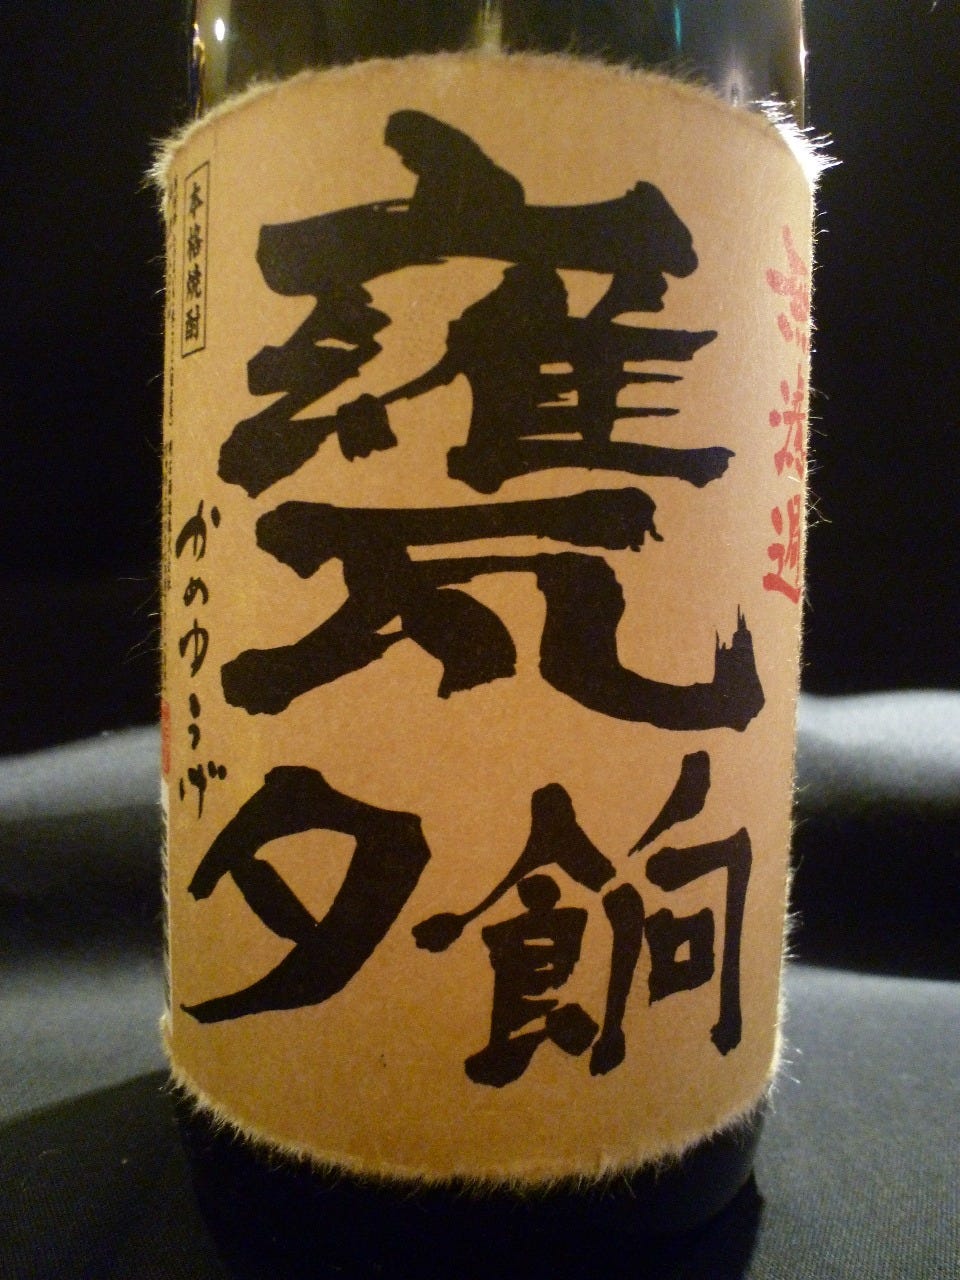 無濾過
甕
夕餉
かめゆうげ
本格焼酎